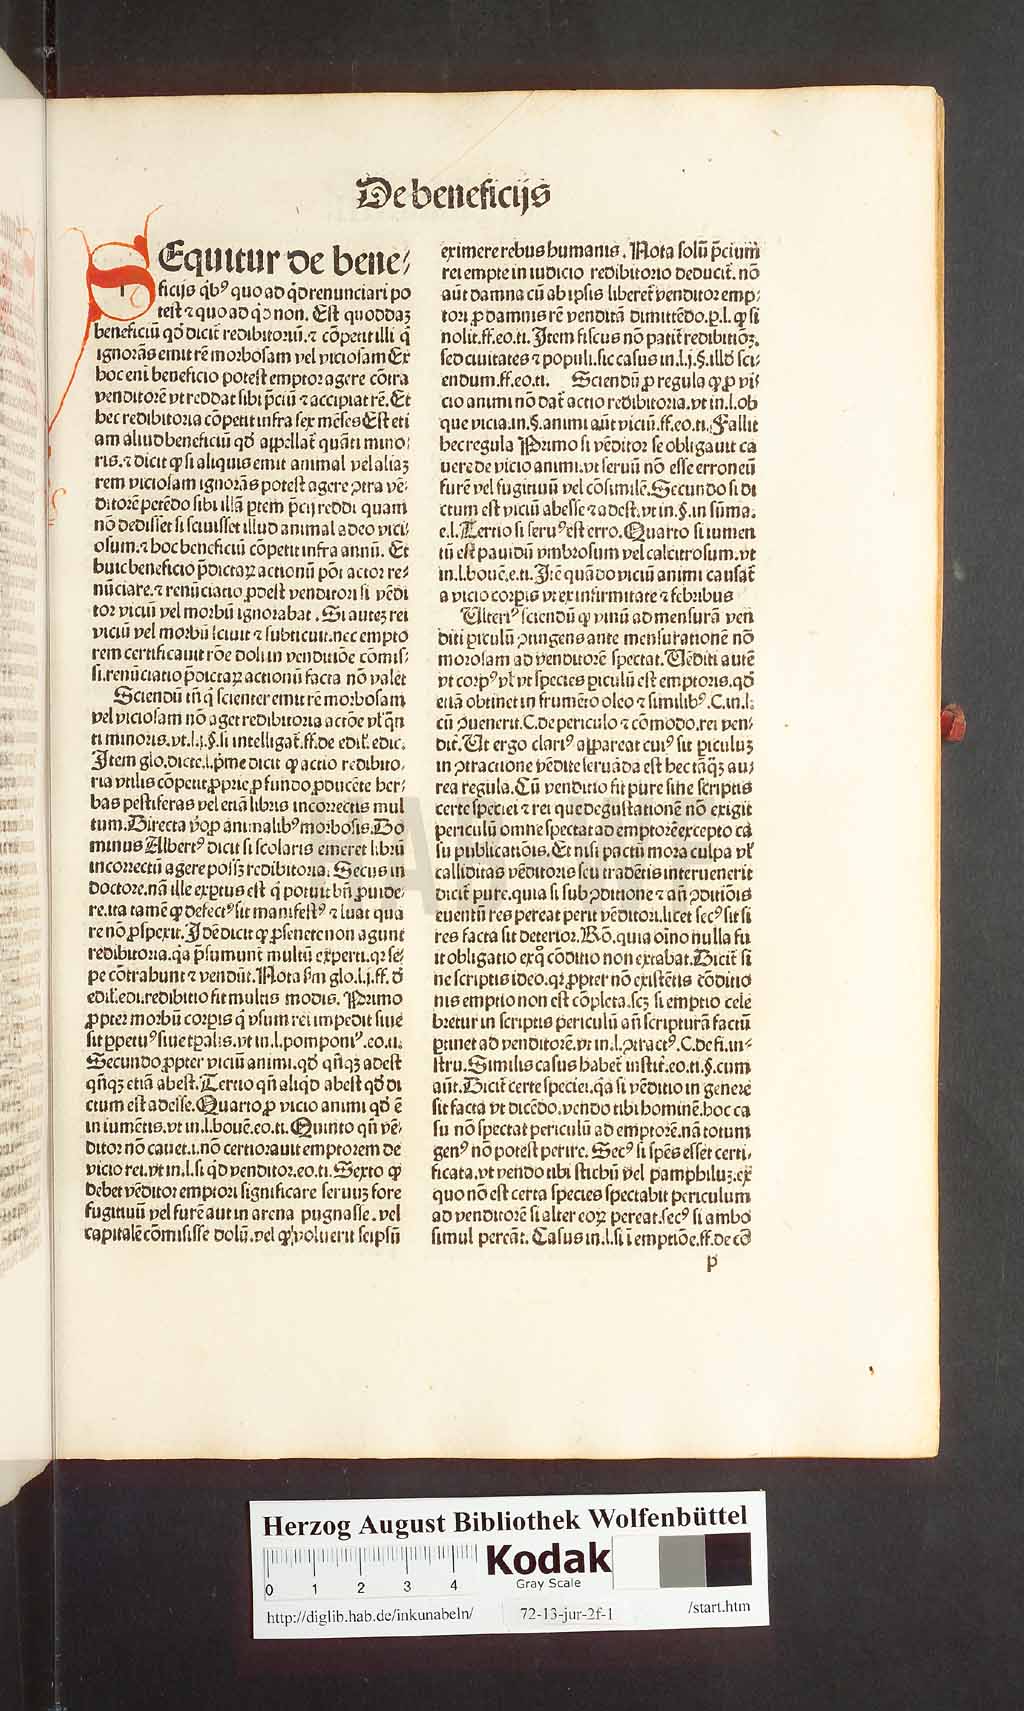 De beneficijs
SEquitur de bene⸗
ficijs q̇bꝰ quo ad q̇d renunciari po
test ⁊ quo ad q̇d non. Est quoddaꝫ
beneficiū qd̕ dicit̄ redibitoriū.⁊ cōpetit illi q̇
ignorās emit rē morbosam vel viciosam Ex
hoc eni beneficio potest emptor agere cōtra
venditorē vt reddat sibi p̄ciū ⁊ accipiat rē. Et
hec redibitoria cōpetit infra sex mēses Est eti
am aliud beneficiū qd̕ appellat̄ quāti mino⸗
ris.⁊ dicit ꝙ si aliquis emit animal vel aliaꝫ
rem viciosam ignorās potest agere ↄtra vē⸗
ditorē petēdo sibi illā ꝑtem p̄cij reddi quam
nō dedisset si sciuisset illud animal adeo vici⸗
osum.⁊ hoc beneficiū cōpetit infra annū. Et
huic beneficio p̄dictaꝝ actionū pōt actor re⸗
nūciare.⁊ renūciatio ꝓdest venditori si vēdi
tor viciū vel morbū ignorabat. Si auteꝫ rei
viciū vel morbū sciuit ⁊ subticuit.nec empto
rem certificauit rōe doli in venditiōe cōmis⸗
si.renūciatio p̄dictaꝝ actionū facta nō valet
Sciendū tn̄ q̇ scienter emit rē morbosam
vel viciosam nō aget redibitoria actōe vl̕ q̄n
ti minoris.vt.l.j.§.si intelligat̄.ff.de edil̕.edic.
Item glo.dicte.l.p̄me dicit ꝙ actio redibito⸗
ria vtilis cōpetit ꝓprie ꝓ fundo ꝓducēte her⸗
bas pestiferas vel etiā libris incorrectis mul
tum.Directa v̊o ꝓ animalibꝰ morbosis.Do
minus Albertꝰ dicit si scolaris emeret librū
incorrectū agere possꝫ redibitoria. Secus in
doctore.nā ille exꝑtus est q̇ potuit bn̄ ꝓuide⸗
re.ita tamē ꝙ defectꝰ sit manifestꝰ ⁊ luat qua
re nō ꝓspexit. Idē dicit ꝙ ꝓ senete non agunt
redibitoria.q̇a p̄sumunt̄ multū experti.qꝛ se⸗
pe cōtrahunt ⁊ vendūt. Nota sm̄ glo.l.j.ff.d̕
edil̕.edi.redibitio fit multis modis. Primo
ꝓpter morbū corꝑis q̇ vsum rei impedit siue
sit ꝑpetuꝰ siue tꝑalis.vt in.l.pomponiꝰ.eo.ti.
Secundo ꝓpter viciū animi.qd̕ qn̄qꝫ adest
qn̄qꝫ etiā abest. Tertio qn̄ aliqd̕ abest qd̕ di
ctum est adesse. Quarto ꝓ vicio animi qd̕ ē
in iumētis.vt in.l.bouē.eo.ti. Quinto qn̄ vē⸗
ditor nō cauet.i.nō certiorauit emptorem de
vicio rei.vt in.l.si q̇d venditor.eo.ti. Sexto ꝙ
debet vēditor emptori significare seruuꝫ fore
fugitiuū vel furē aut in arena pugnasse.vel
capitalē cōmisisse dolū.vel ꝙ voluerit seipsū
eximere rebus humanis. Nota solū p̄cium
rei empte in iudicio redibitorio deducit̄.nō
aūt damna cū ab ipsis liberet̄ venditor emp⸗
tori ꝓ damnis rē venditā dimittēdo.ꝑ.l. ꝙ si
nolit.ff.eo.ti. Item fiscus nō patit̄ redibitiōꝫ.
sed ciuitates ⁊ populi.sic casus in.l.j.§.illd̕ sci⸗
endum.ff.eo.ti. Sciendū ꝓ regula ꝙ ꝓ vi⸗
cio animi nō dat̄ actio redibitoria.vt in.l.ob
que vicia.in.§.animi aūt viciū.ff.eo.ti. Fallit
hec regula Primo si vēditor se obligauit ca
uere de vicio animi.vt seruū nō esse erroneū
furē vel fugitiuū vel cōsimilē. Secundo si di
ctum est viciū abesse ⁊ adest.vt in.§.in sūma.
e.l. Tertio si seruꝰ est erro. Quarto si iumen
tū est pauidū vmbrosum vel calcitrosum.vt
in.l.bouē.e.ti. Itē quādo viciū animi causat̄
a vicio corꝑis vt ex infirmitate ⁊ febribus
Ulteriꝰ sciendū ꝙ vinū ad mensurā ven
diti ꝑiculū ↄtingens ante mensurationē nō
morosam ad venditorē spectat. Uēditi autē
vt corpꝰ vl̕ vt species ꝑiculū est emptoris.qd̕
etiā obtinet in frumēto oleo ⁊ similibꝰ. C.in.l.
cū ↄuenerit.C.de periculo ⁊ cōmodo.rei ven⸗
dit̄. Ut ergo clariꝰ appareat cuiꝰ sit ꝑiculuꝫ
in ↄtractione vēdite seruāda est hec tāq̄ꝫ au⸗
rea regula. Cū venditio fit pure sine scriptis
certe speciei ⁊ rei que degustationē nō exigit
periculū omne spectat ad emptorē excepto ca
su publicatiōis. Et nisi pactū mora culpa vl̕
calliditas vēditoris seu tradētis interuenerit
dicit̄ pure.quia si sub ↄditione ⁊ an̄ ↄditiōis
euentū res pereat perit vēditori.licet secꝰ sit si
res facta sit deterior. Rō.quia oīno nulla fu
it obligatio exq̇ cōditio non extabat. Dicit̄ si
ne scriptis ideo.qꝛ ꝓpter nō existētis cōditio
nis emptio non est cōpleta.scꝫ si emptio cele
bretur in scriptis periculū an̄ scripturā factū
ꝑtinet ad venditorē.vt in.l.ↄtractꝰ.C.de fi.in⸗
stru. Similis casus habet̄ instit̄.eo.ti.§.cum
aūt. Dicit̄ certe speciei.q̇a si vēditio in genere
sit facta vt dicēdo.vendo tibi hominē.hoc ca
su nō spectat periculū ad emptorē.nā totum
genꝰ nō potest perire. Secꝰ si spēs esset certi⸗
ficata.vt vendo tibi stichū vel pamphiluꝫ.ex
quo nō est certa species spectabit periculum
ad venditorē si alter eoꝝ pereat.secꝰ si ambo
simul pereāt. Casus in.l.si i emptiōe.ff.de cō
p
Herzog August Bibliothek Wolfenbüttel
0 1 2 3 4
Kodak
Gray Scale
http://diglib.hab.de/inkunabeln/ 72-13-jur-2f-1 /start.htm